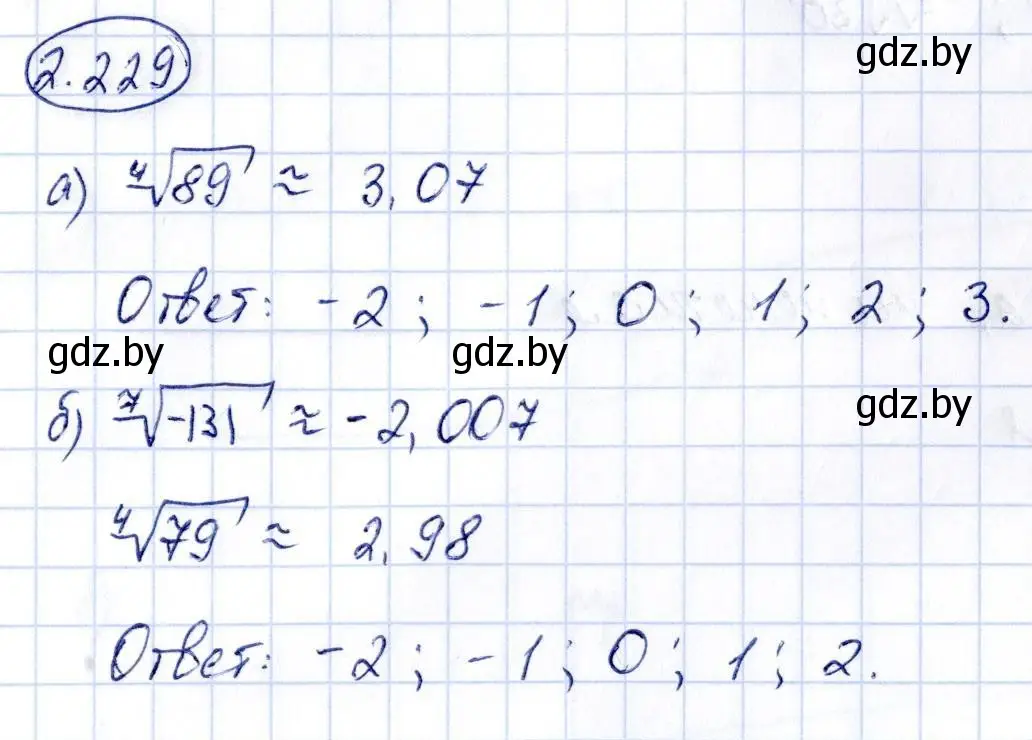 gdz.by
2.229
а) ⁴√89 ≈ 3,07
Ответ: -2; -1; 0; 1; 2; 3.
gdz.by gdz.by
gdz.by
б) ⁷√-131 ≈ -2,007
⁴√79 ≈ 2,98
Ответ: -2; -1; 0; 1; 2.